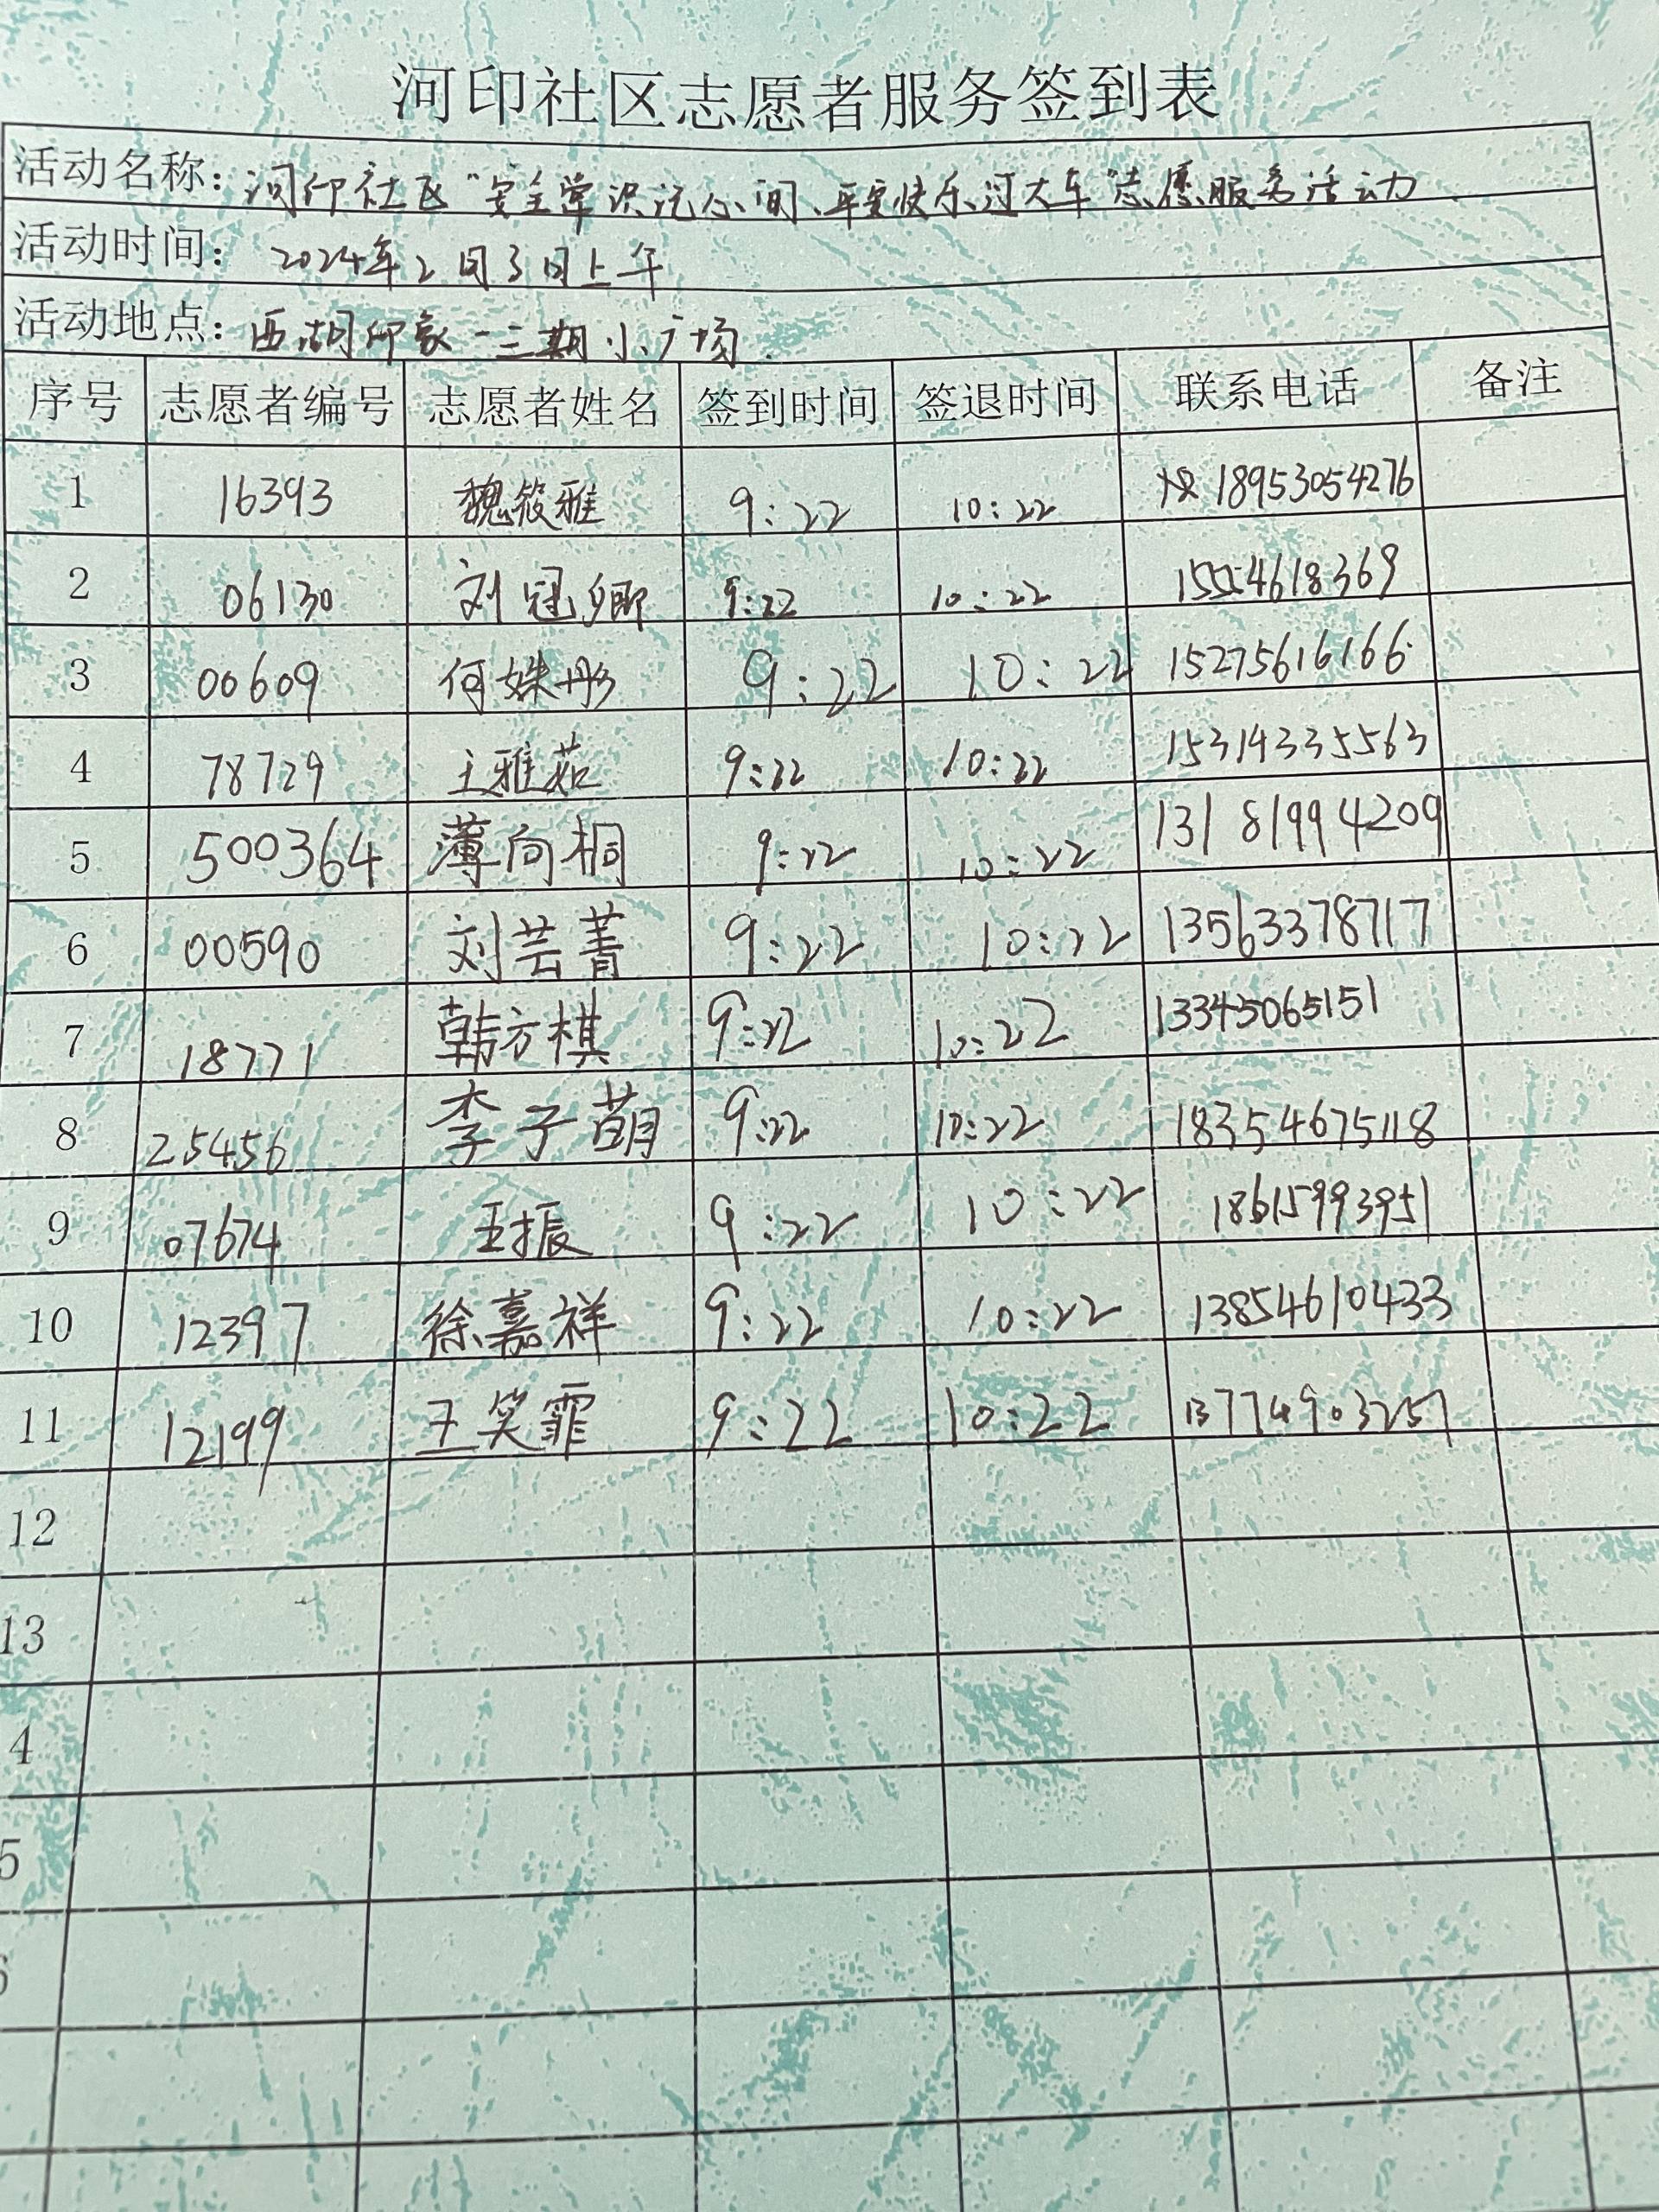 河印社区志愿者服务签到表
活动名称：河印社区“安全常识记心间、平安快乐过大年”志愿服务活动
活动时间：2024年2月3日上午
活动地点：西湖印象一三期小广场.
序号 志愿者编号 志愿者姓名 签到时间 签退时间 联系电话 备注
1 16393 魏筱雅 9:22 10:22 18953054276
2 06130 刘冠卿 9:22 10:22 15554618369
3 00609 何姝彤 9:22 10:22 15275616166
4 78729 王雅茹 9:22 10:22 15314335563
5 500364 薄向桐 9:22 10:22 13181994209
6 00590 刘芸菁 9:22 10:22 13563378717
7 18771 韩方棋 9:22 10:22 13345065151
8 25456 李子萌 9:22 10:22 18354675118
9 07674 王振 9:22 10:22 18615993951
10 12397 徐嘉祥 9:22 10:22 13854610433
11 12199 王笑霏 9:22 10:22 13774903257
12
13
4
5
6